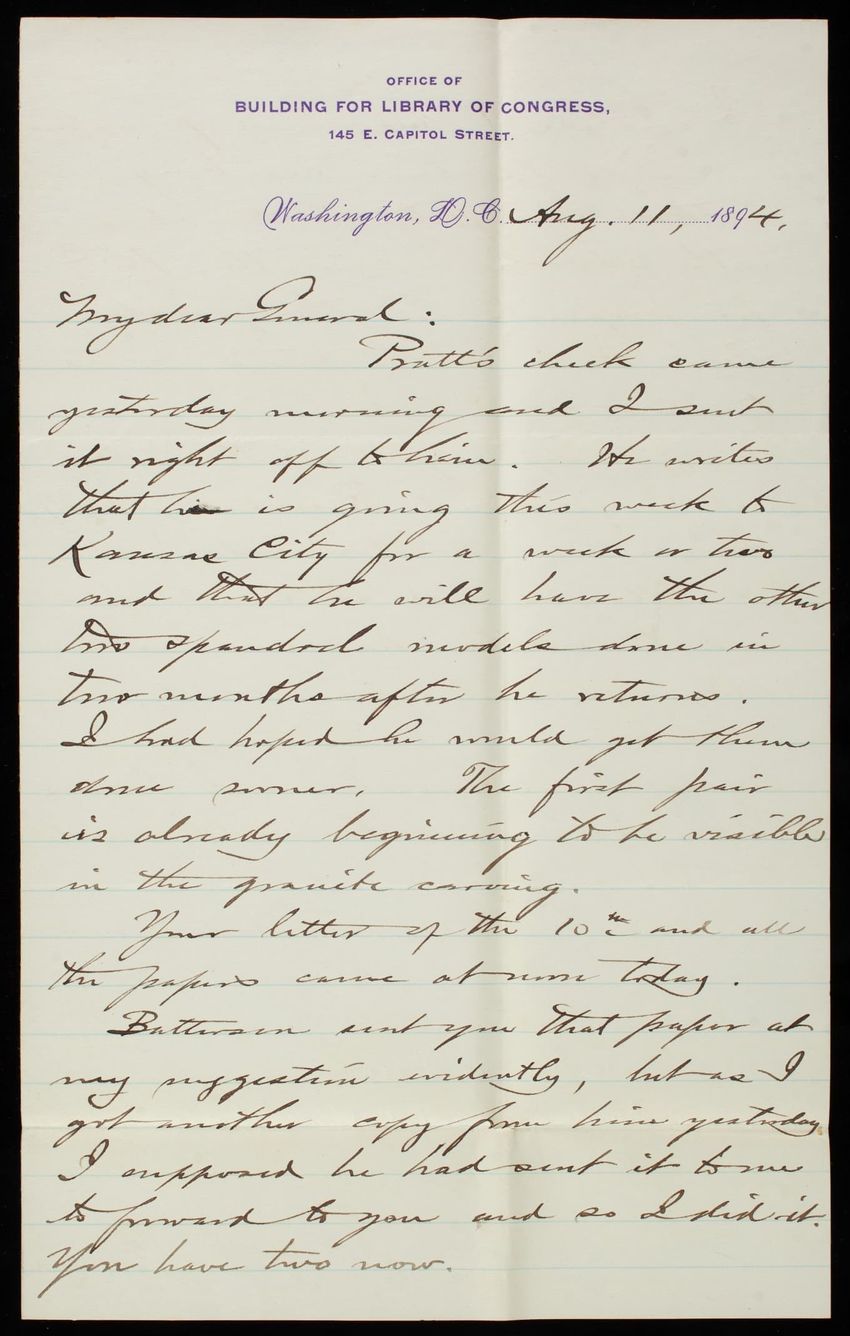 OFFICE OF
BUILDING FOR LIBRARY OF CONGRESS,
145 E. CAPITOL STREET.
Washington, D.C. Aug. 11, 1894.
My dear General:
Pratt's check came
yesterday morning and I sent
it right off to him. He writes
that he is going this week to
Kansas City for a week or two
and that he will have the other
two spandrel models done in
two months after he returns.
I had hoped he would get them
done sooner. The first pair
is already beginning to be visible
in the granite carving.
Your letter of the 10th and all
the papers came at noon today.
Batterson sent you that paper at
my suggestion evidently, but as I
got another copy from him yesterday
I supposed he had sent it to me
to forward to you and so I did it.
You have two now.